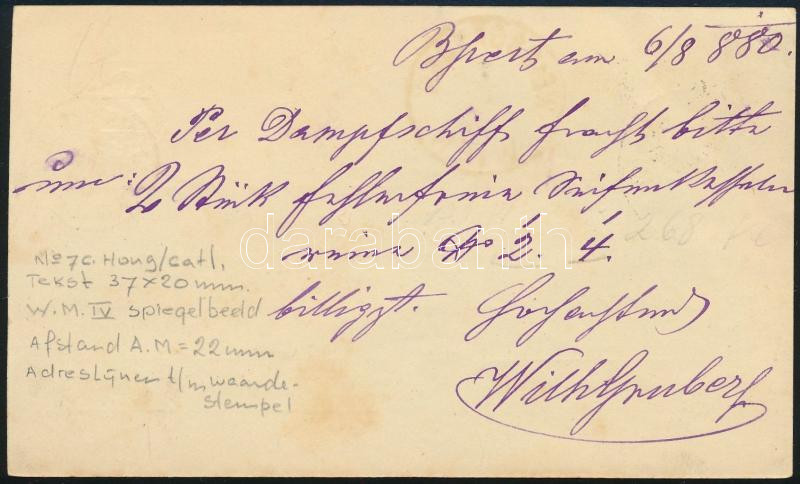 Bpest am 6/8 880.
Per Dampfschiff fracht bitte
um: 2 Stück fehlerfreie
No 2. 4.
billigst. Hochachtend
WilhGruber
No 7c. Hong/catl,
Tekst 37x20mm.
W.M. IV spiegelbeeld
Afstand A.M = 22mm
Adreslijnen t/m waarde-
stempel
268
darabanth